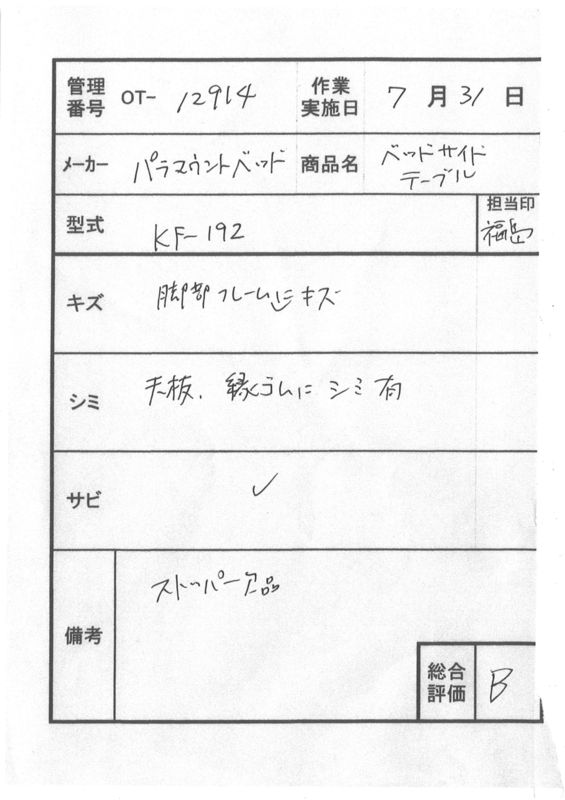 管理番号 OT- 12914 作業実施日 7月31日
メーカー パラマウントベッド 商品名 ベッドサイドテーブル
型式 KF-192 担当印 福島
キズ 脚部フレームにキズ
シミ 天板、縁ゴムにシミ有
サビ ✓
備考 ストッパー欠品
総合評価 B